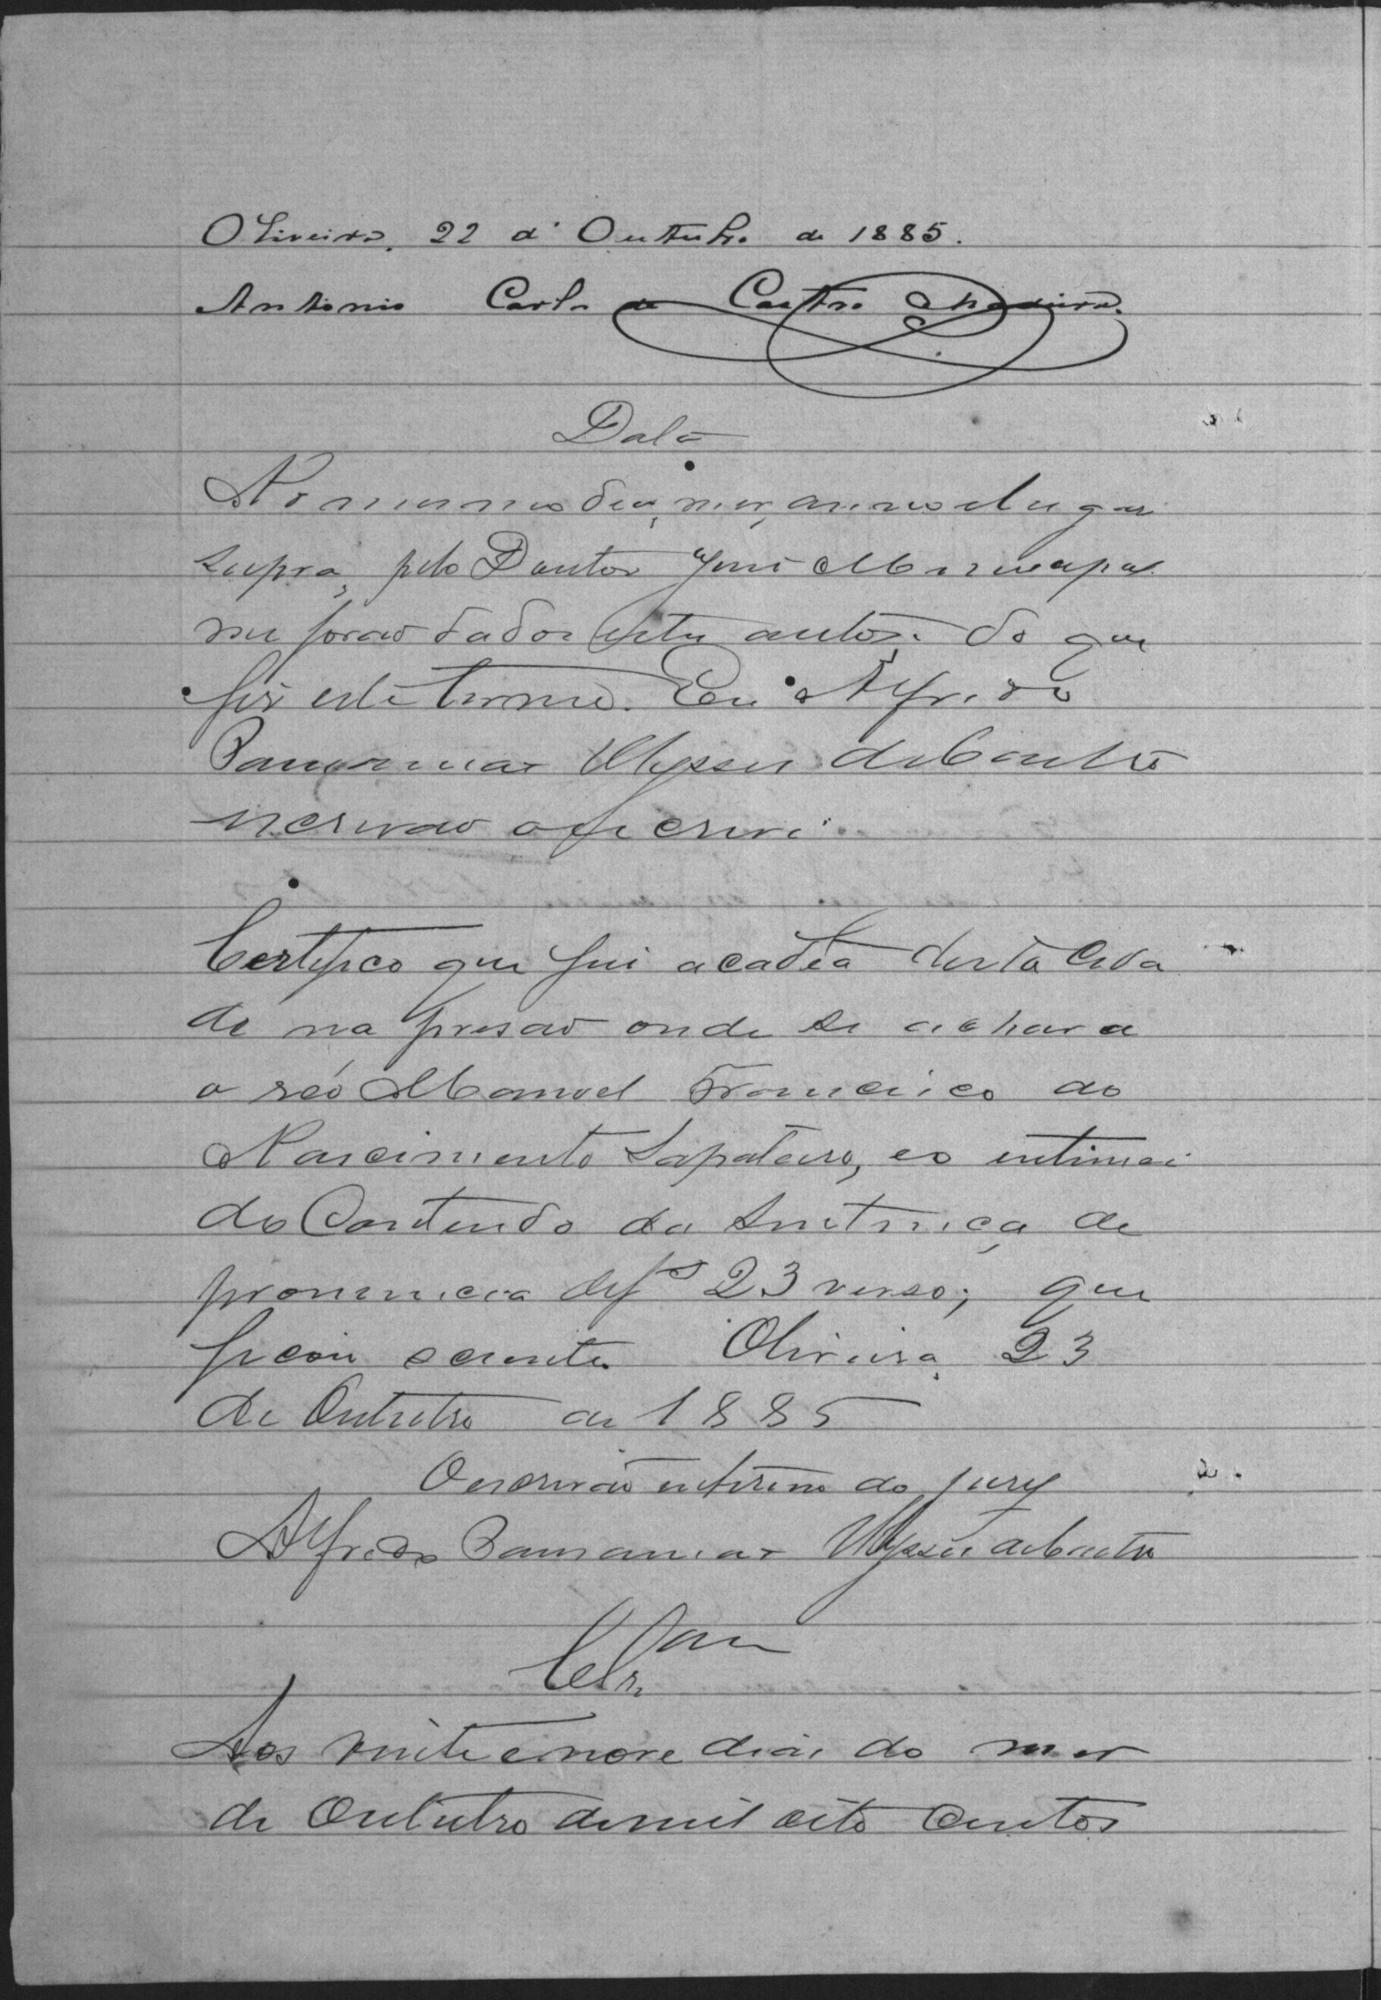 Oliveira, 22 d'Outubro de 1885.
Antonio Carlos de Castro Madeira.
Data
No mesmo dia, mez, anno e lugar
supra, pelo Doutor Juis Municipal
me forão dados estes autos; do que
fiz este termo. Eu Alfredo
Ulysses de Castro
escrivão o escrevi.
Certifico que fui a cadêa desta Cida
de na prisão onde se achava
o réo Manoel Francisco do
Nascimento Sapateiro, e o intimei
do Conteudo da Sentença de
pronuncia de fs 23 verso; que
ficou sciente. Oliveira, 23
de Outubro de 1885
O escrivão interino do jury
Alfredo Ulysses de Castro
Clsam
Aos vinte e nove dias do mez
de Outubro de mil oito centos